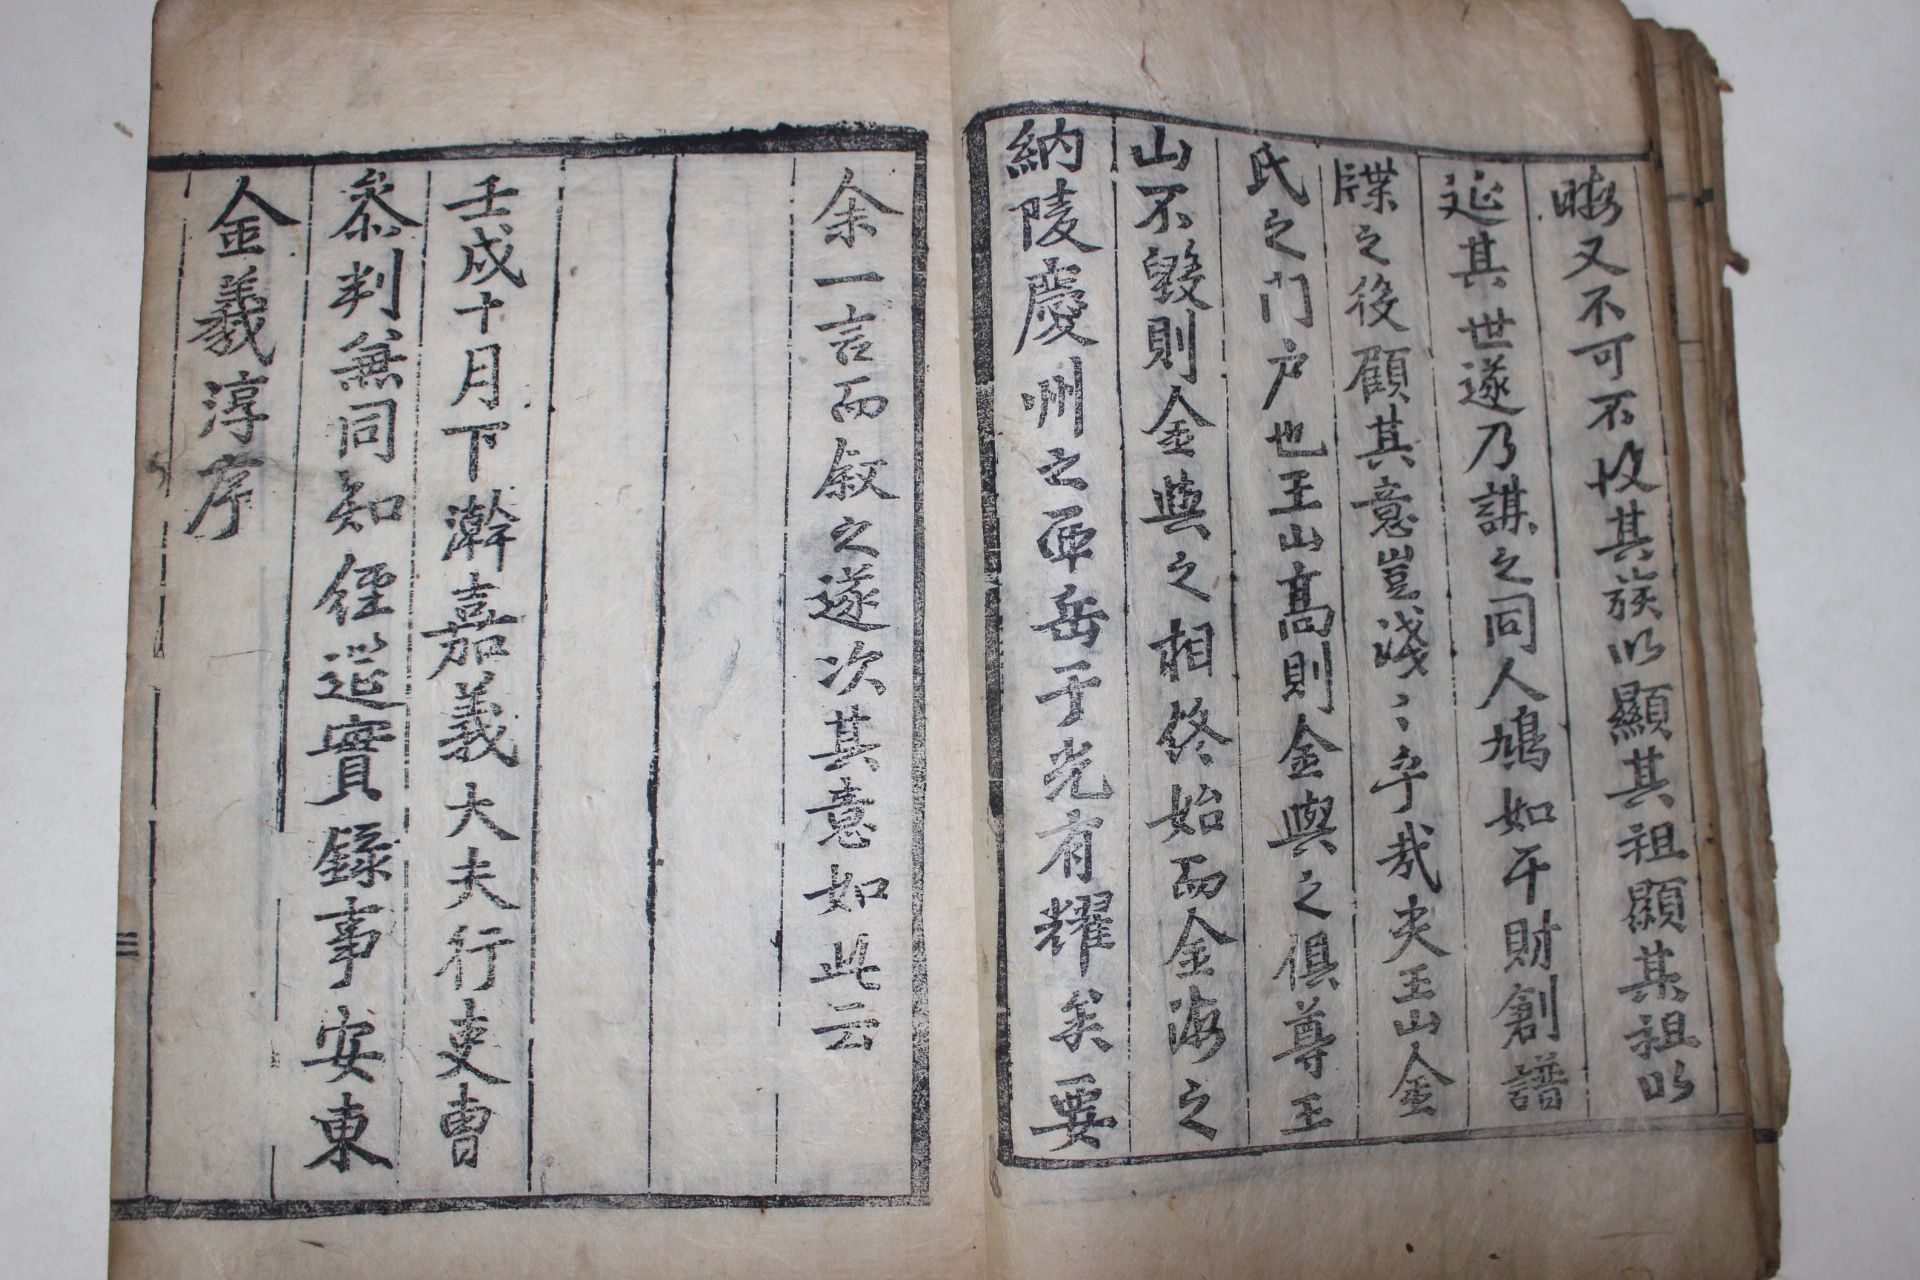 晦又不可不收其族以顯其祖顯其祖以
延其世遂乃謀之同人鳩如干財創譜
牒之後顧其意豈淺〻乎哉夫王山金
氏之门户也王山髙則金與之俱尊王
山不毀則金與之相終始而金海之
納陵慶州之面岳于光有耀矣要
余一言而叙之遂次其意如此云
壬戌十月下澣嘉義大夫行吏曹
叅判兼同知經筵實錄事安東
金羲淳序